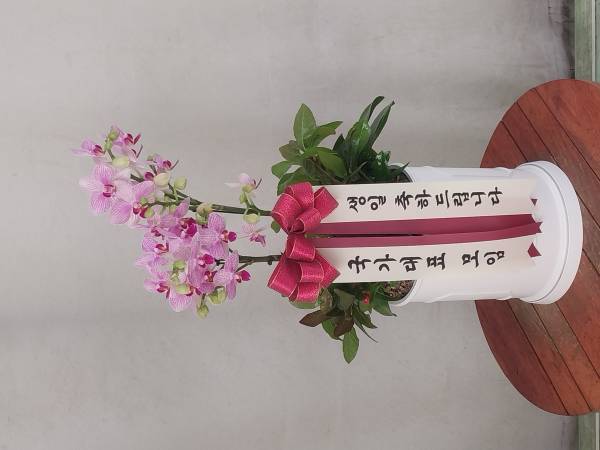 생일 축하드립니다
국가대표 모임